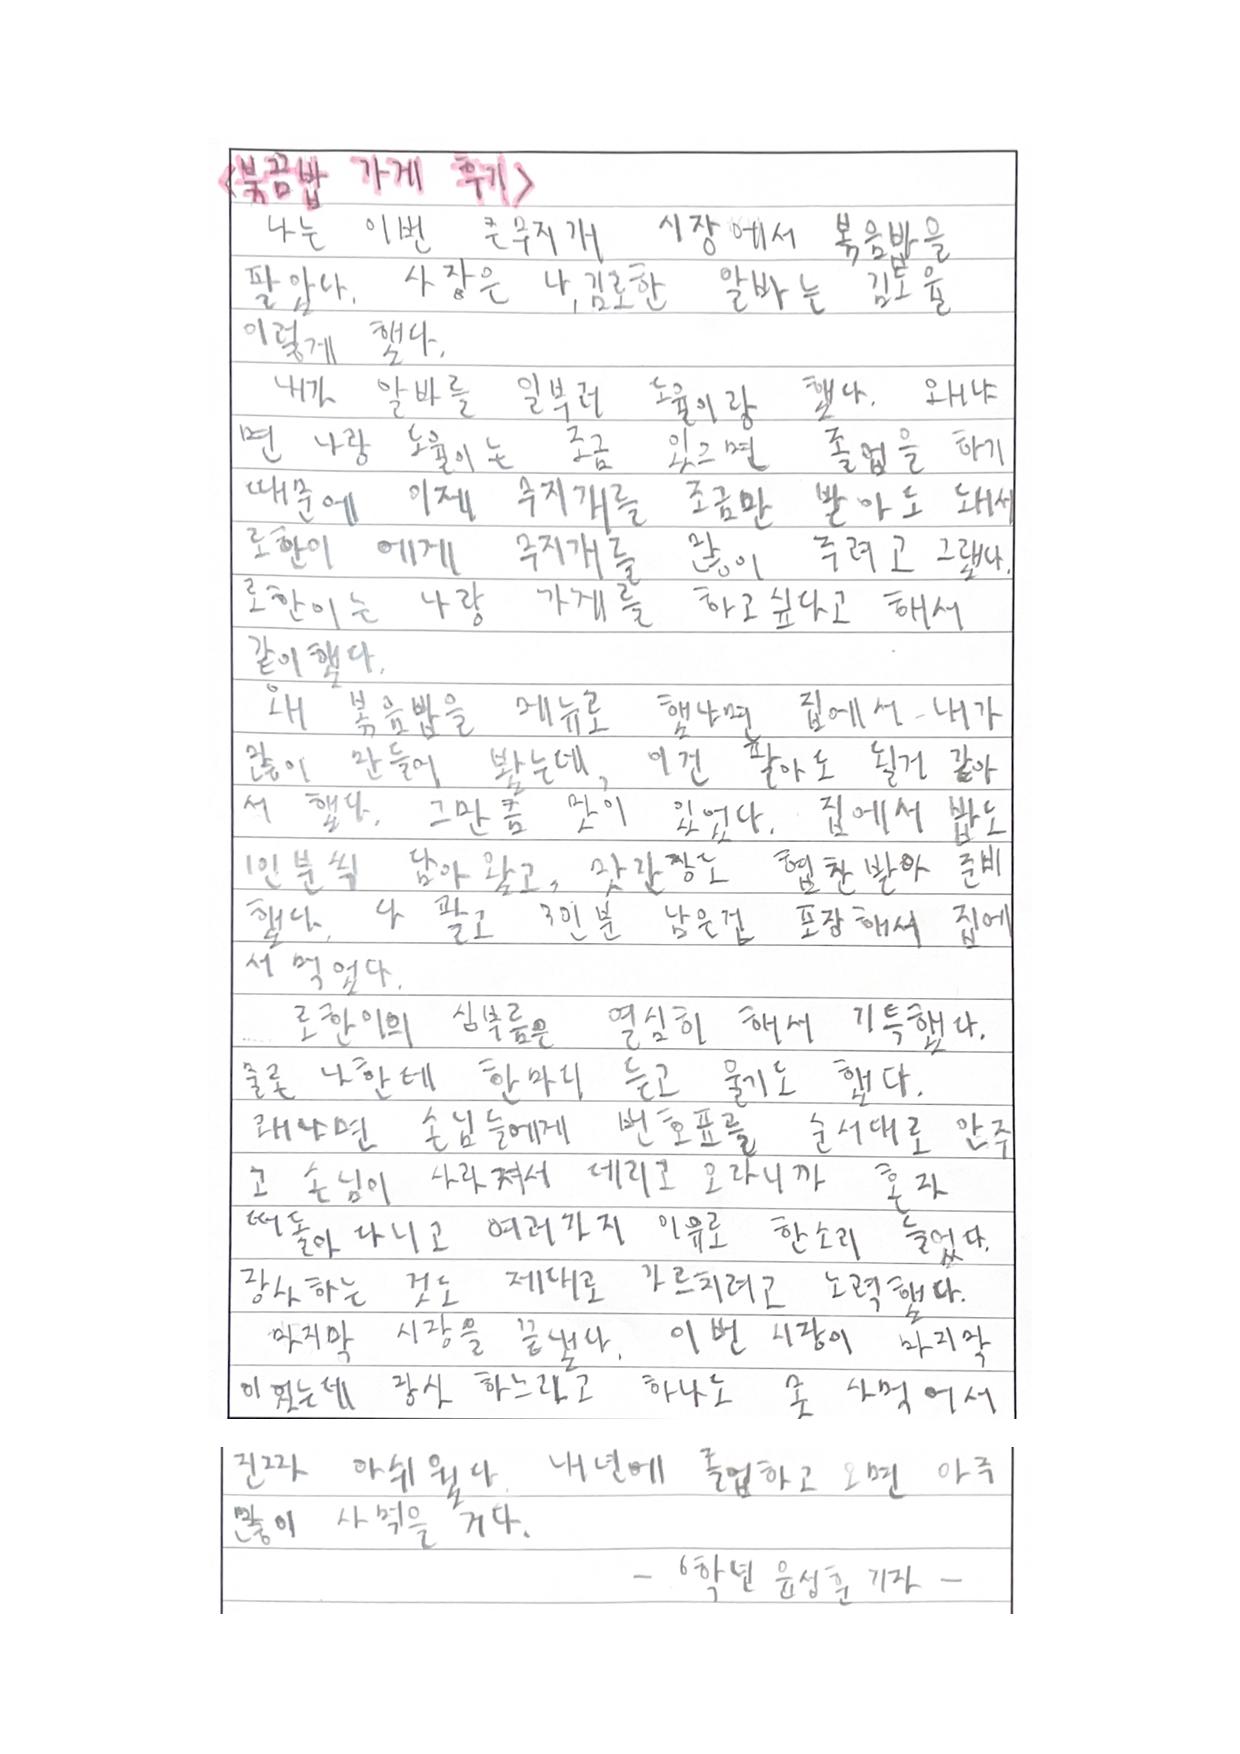 <볶음밥 가게 후기>
나는 이번 큰무지개 시장에서 볶음밥을
팔았다. 사장은 나,김로한 알바는 김도율
이렇게 했다.
내가 알바를 일부러 도율이랑 했다. 왜냐
면 나랑 도율이는 조금 있으면 졸업을 하기
때문에 이제 무지개를 조금만 받아도 돼서
로한이 에게 무지개를 많이 주려고 그랬다.
로한이는 나랑 가게를 하고싶다고 해서
같이했다.
왜 볶음밥을 메뉴로 했냐면 집에서 내가
많이 만들어 봤는데, 이건 팔아도 될거 같아
서 했다. 그만큼 맛이 있었다. 집에서 밥도
1인분씩 담아 왔고, 맛간장도 협찬받아 준비
했다. 다 팔고 3인분 남은건 포장해서 집에
서 먹었다.
로한이의 심부름은 열심히 해서 기특했다.
줄로 나한테 한마디 듣고 울기도 했다.
왜냐면 손님들에게 번호표를 순서대로 안주
고 손님이 사라져서 데리고 오라니까 혼자
떠돌아 다니고 여러가지 이유로 한소리 들었다.
장사하는 것도 제대로 가르치려고 노력했다.
마지막 시장을 끝냈다. 이번 시장이 마지막
이었는데 장사 하느라고 하나도 못 사먹어서
진짜 아쉬웠다. 내년에 졸업하고 오면 아주
많이 사먹을 거다.
- 6학년 윤성훈 기자 -